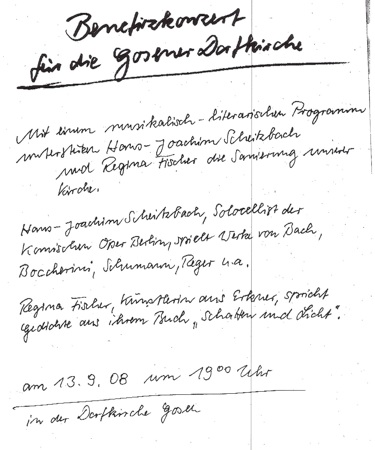 Benefizkonzert
für die Gosener Dorfkirche
Mit einem musikalisch-literarischen Programm
unterstützen Hans-Joachim Scheitzbach
und Regina Fischer die Sanierung unserer
Kirche.
Hans-Joachim Scheitzbach, Solocellist der
Komischen Oper Berlin, spielt Werke von Bach,
Boccherini, Schumann, Reger u.a.
Regina Fischer, Künstlerin aus Erkner, spricht
Gedichte aus ihrem Buch „Schatten und Licht".
am 13.9.08 um 19⁰⁰ Uhr
in der Dorfkirche Gosen